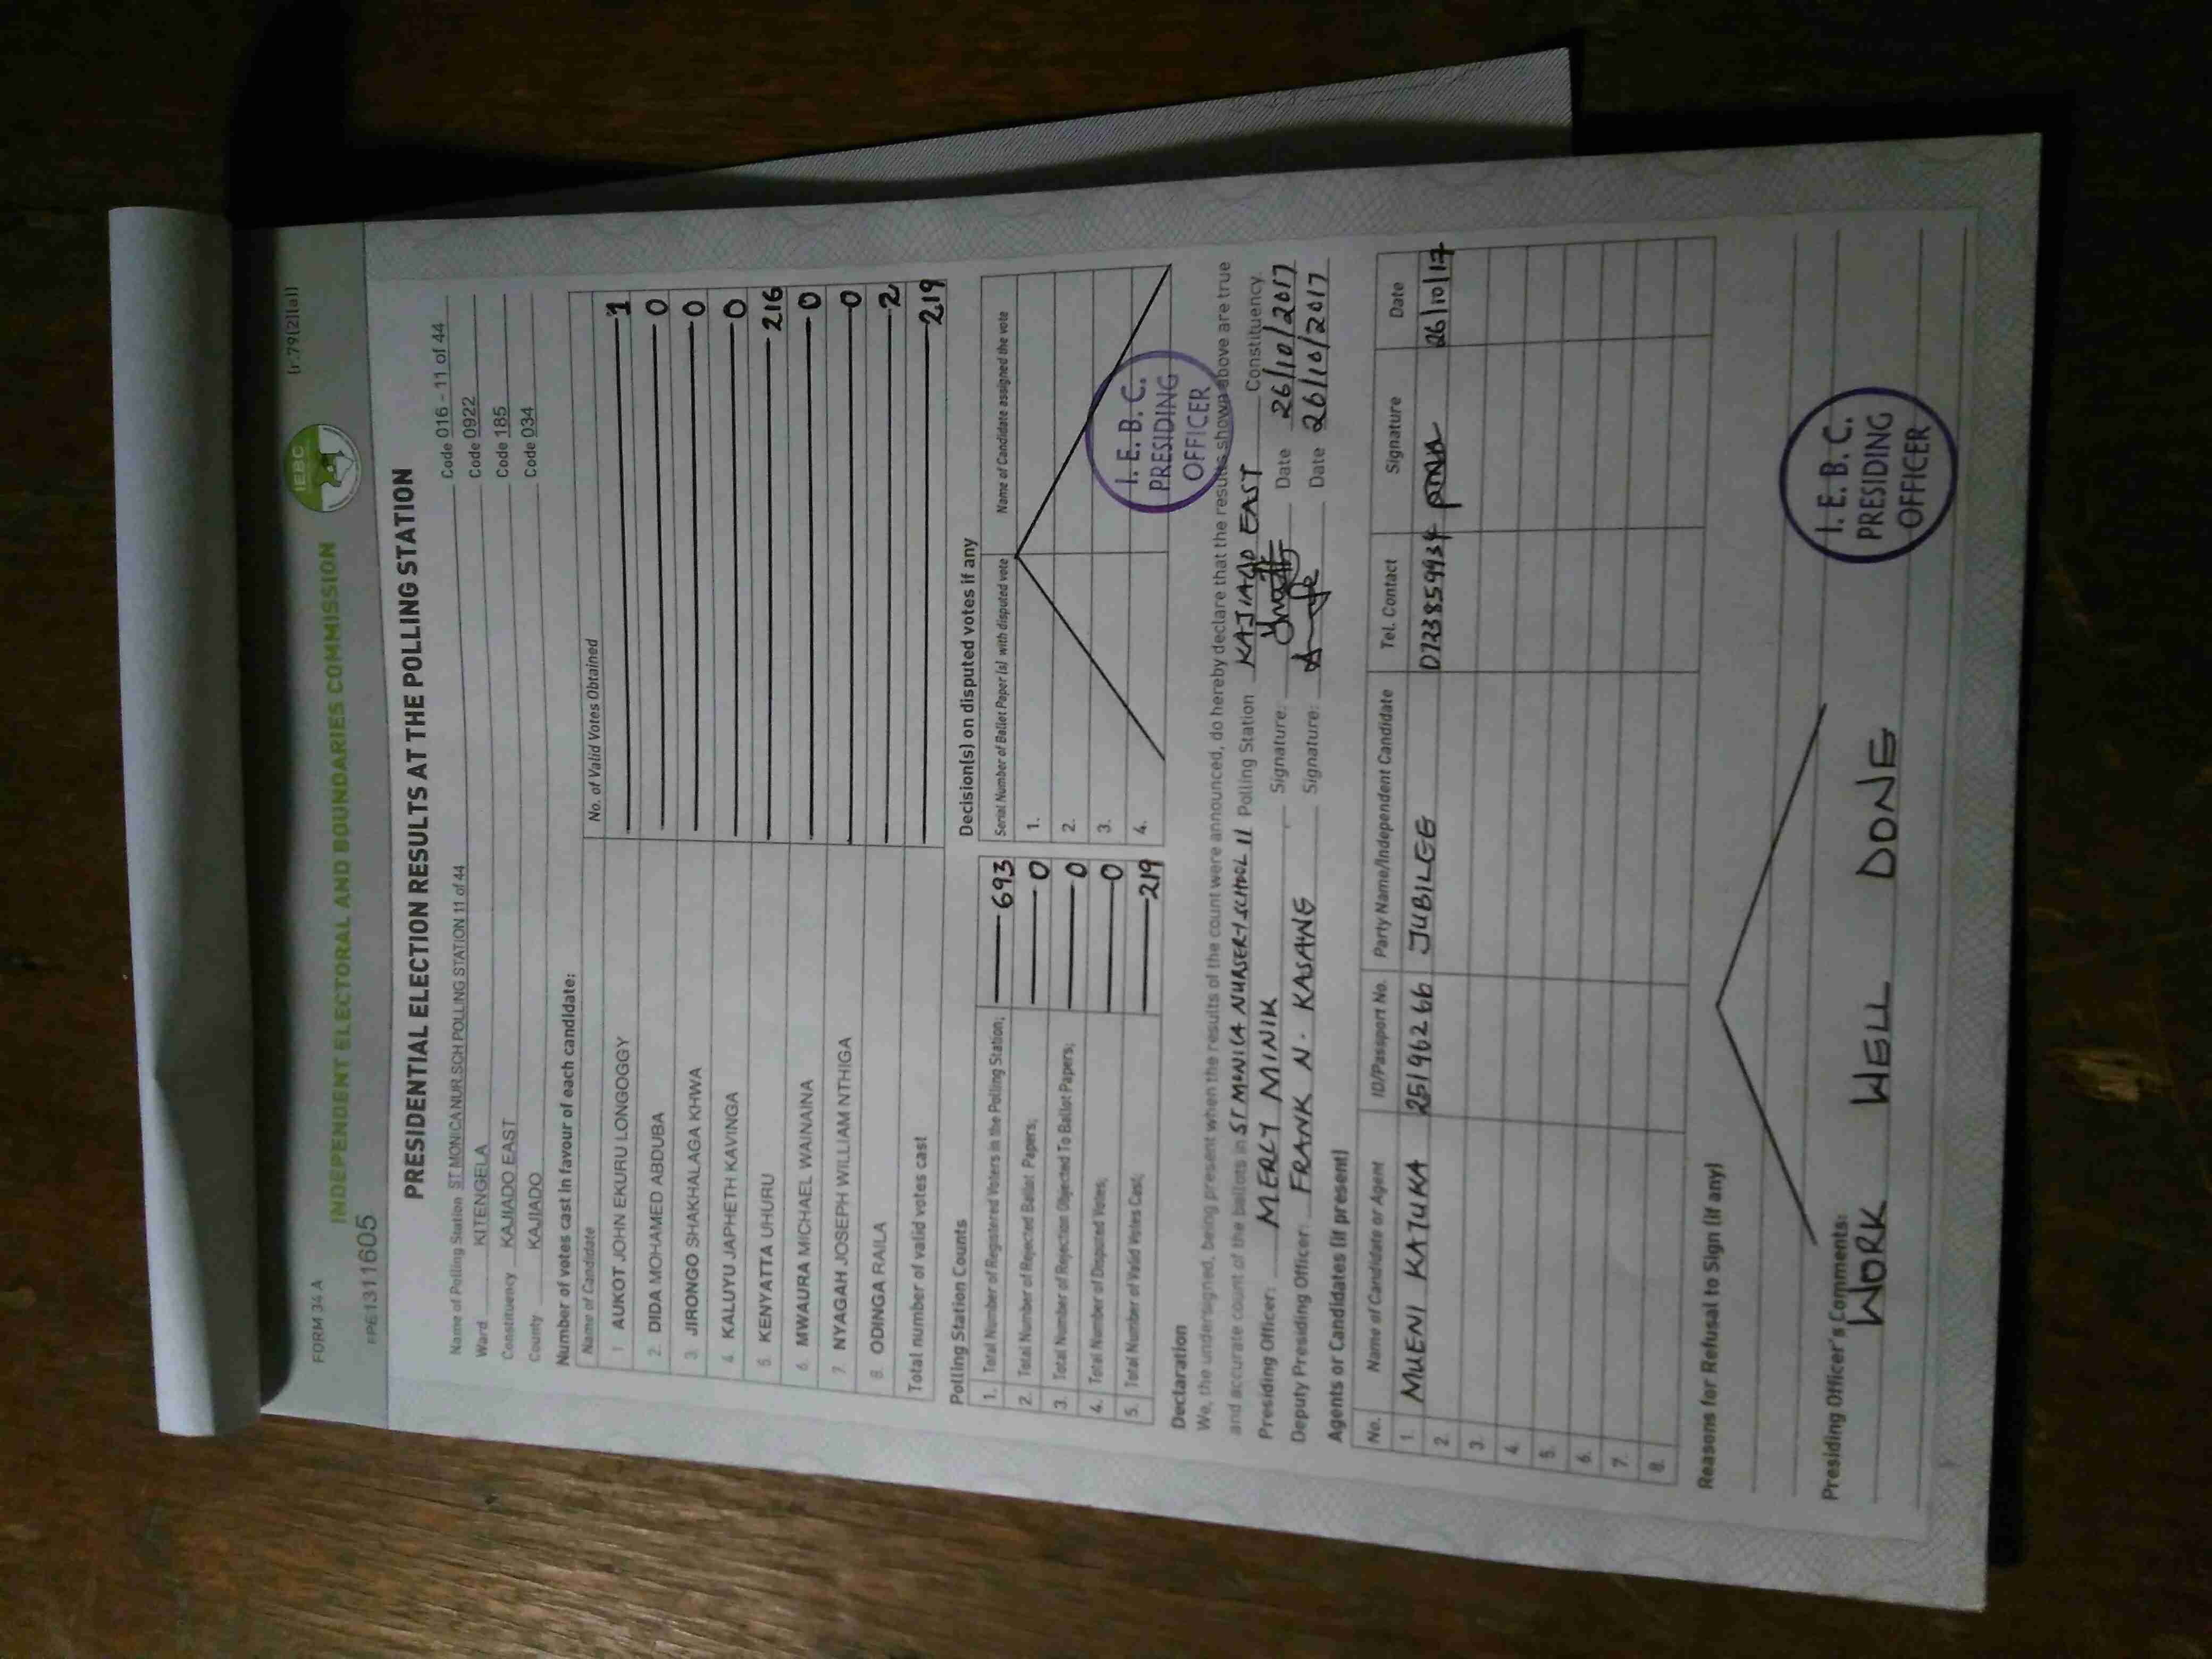 FORM 34 A
(r.79(2)(a))
IEBC
INDEPENDENT ELECTORAL AND BOUNDARIES COMMISSION
FPE1311605
PRESIDENTIAL ELECTION RESULTS AT THE POLLING STATION
Name of Polling Station ST MONICA NUR.SCH POLLING STATION 11 of 44 Code 016 - 11 of 44
Ward KITENGELA Code 0922
Constituency KAJIADO EAST Code 185
County KAJIADO Code 034
Number of votes cast in favour of each candidate:
Name of Candidate No. of Valid Votes Obtained
1 AUKOT JOHN EKURU LONGOGGY 1
2. DIDA MOHAMED ABDUBA 0
3. JIRONGO SHAKHALAGA KHWA 0
4. KALUYU JAPHETH KAVINGA 0
5. KENYATTA UHURU 216
6. MWAURA MICHAEL WAINAINA 0
7. NYAGAH JOSEPH WILLIAM NTHIGA 0
8. ODINGA RAILA 2
Total number of valid votes cast 219
Polling Station Counts
1. Total Number of Registered Voters in the Polling Station; 693
2. Total Number of Rejected Ballot Papers; 0
3. Total Number of Rejection Objected To Ballot Papers; 0
4. Total Number of Disputed Votes; 0
5. Total Number of Valid Votes Cast; 219
Decision(s) on disputed votes if any
Serial Number of Ballot Paper (s) with disputed vote Name of Candidate assigned the vote
1.
2.
3.
4.
I. E. B. C.
PRESIDING
OFFICER
Declaration
We, the undersigned, being present when the results of the count were announced, do hereby declare that the results shown above are true
and accurate count of the ballots in ST MONICA NURSERY SCHOOL 11 Polling Station KAJIADO EAST Constituency.
Presiding Officer: MERCY MINIK Signature: Date 26/10/2017
Deputy Presiding Officer: FRANK N. KASANG Signature: Date 26/10/2017
Agents or Candidates (if present)
No. Name of Candidate or Agent ID/Passport No. Party Name/Independent Candidate Tel. Contact Signature Date
1. MUENI KATUKA 25196266 JUBILEE 26/10/17
2.
3.
4.
5.
6.
7.
8.
Reasons for Refusal to Sign (if any)
Presiding Officer's Comments:
WORK WELL DONE
I. E. B. C.
PRESIDING
OFFICER